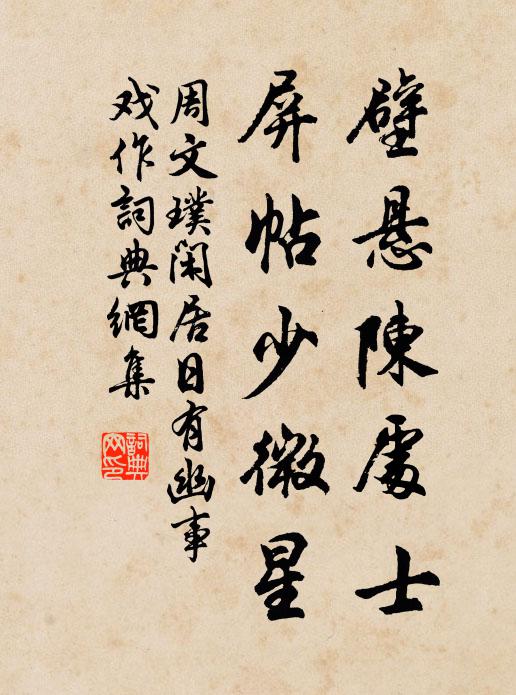 壁悬陳處士
屏帖少微星
周文璞闲居日有幽事
戏作詞典網集
詞典
网印